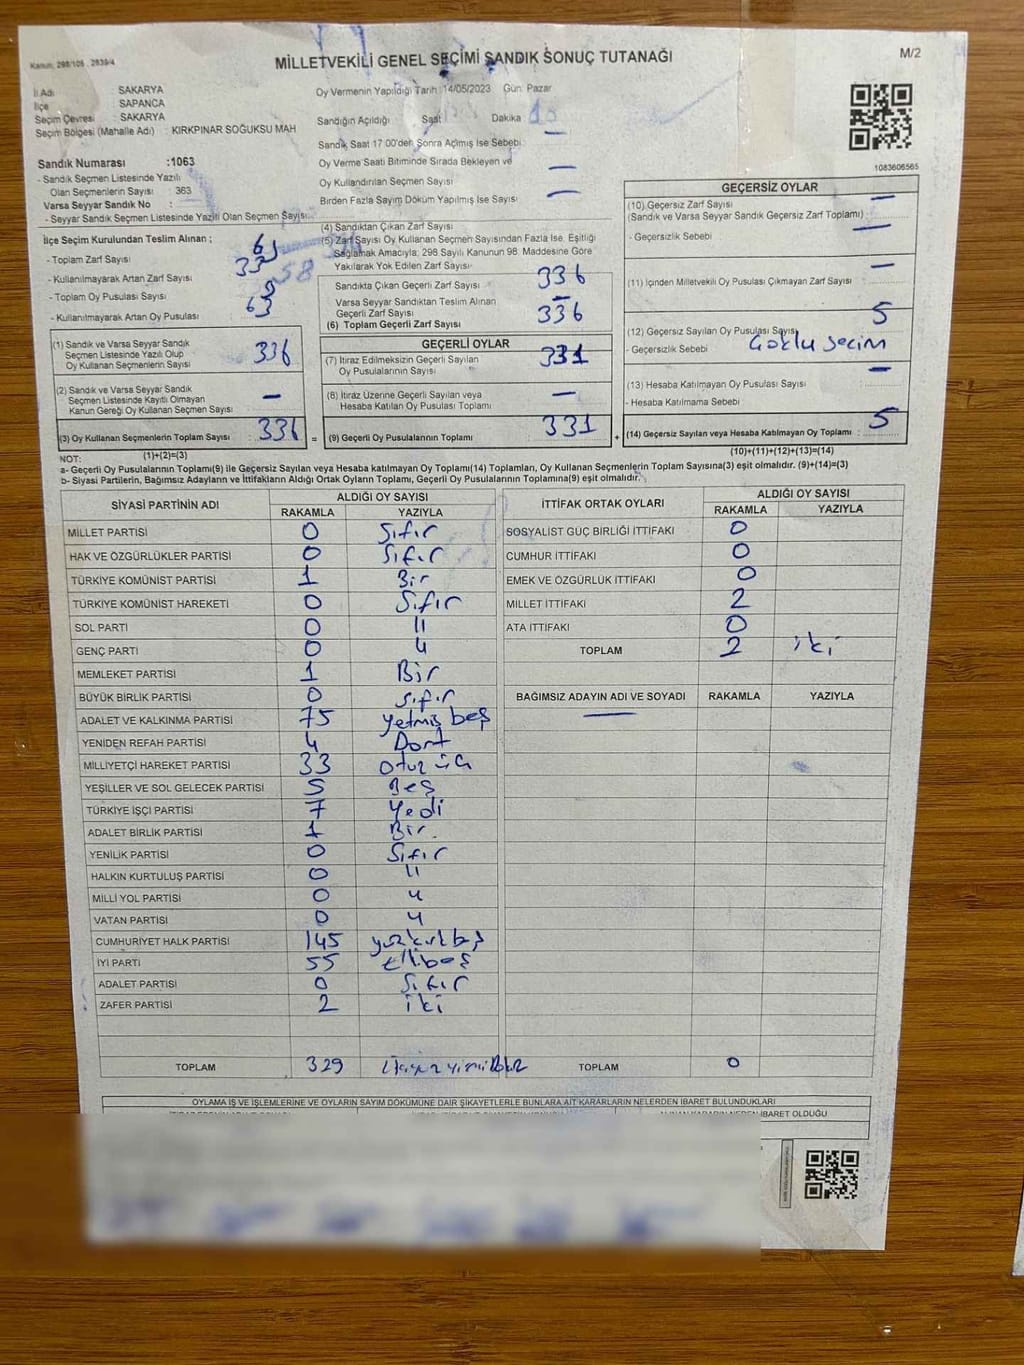 Kanun: 298/105 , 2839/4
MİLLETVEKİLİ GENEL SEÇİMİ SANDIK SONUÇ TUTANAĞI
M/2
İl Adı : SAKARYA
İlçe : SAPANCA
Seçim Çevresi : SAKARYA
Seçim Bölgesi (Mahalle Adı) : KIRKPINAR SOĞUKSU MAH
Sandık Numarası :1063
- Sandık Seçmen Listesinde Yazılı
Olan Seçmenlerin Sayısı : 363
Varsa Seyyar Sandık No :
- Seyyar Sandık Seçmen Listesinde Yazılı Olan Seçmen Sayısı:
Oy Vermenin Yapıldığı Tarih: 14/05/2023 Gün: Pazar
Sandığın Açıldığı Saat Dakika
Sandık Saat 17:00'den Sonra Açılmış İse Sebebi: —
Oy Verme Saati Bitiminde Sırada Bekleyen ve
Oy Kullandırılan Seçmen Sayısı —
Birden Fazla Sayım Döküm Yapılmış İse Sayısı: —
1083606565
İlçe Seçim Kurulundan Teslim Alınan ;
- Toplam Zarf Sayısı
- Kullanılmayarak Artan Zarf Sayısı
- Toplam Oy Pusulası Sayısı
- Kullanılmayarak Artan Oy Pusulası
(1) Sandık ve Varsa Seyyar Sandık
Seçmen Listesinde Yazılı Olup
Oy Kullanan Seçmenlerin Sayısı : 336
(2) Sandık ve Varsa Seyyar Sandık
Seçmen Listesinde Kayıtlı Olmayan
Kanun Gereği Oy Kullanan Seçmen Sayısı : —
(3) Oy Kullanan Seçmenlerin Toplam Sayısı : 336 =
(1)+(2)=(3)
(4) Sandıktan Çıkan Zarf Sayısı
(5) Zarf Sayısı Oy Kullanan Seçmen Sayısından Fazla İse, Eşitliği
Sağlamak Amacıyla; 298 Sayılı Kanunun 98. Maddesine Göre
Yakılarak Yok Edilen Zarf Sayısı
Sandıkta Çıkan Geçerli Zarf Sayısı 336
Varsa Seyyar Sandıktan Teslim Alınan
Geçerli Zarf Sayısı —
(6) Toplam Geçerli Zarf Sayısı 336
GEÇERLİ OYLAR
(7) İtiraz Edilmeksizin Geçerli Sayılan
Oy Pusulalarının Sayısı : 331
(8) İtiraz Üzerine Geçerli Sayılan veya
Hesaba Katılan Oy Pusulası Toplamı : —
(9) Geçerli Oy Pusulalarının Toplamı : 331 +
GEÇERSİZ OYLAR
(10) Geçersiz Zarf Sayısı
(Sandık ve Varsa Seyyar Sandık Geçersiz Zarf Toplamı) : —
- Geçersizlik Sebebi : —
(11) İçinden Milletvekili Oy Pusulası Çıkmayan Zarf Sayısı : —
(12) Geçersiz Sayılan Oy Pusulası Sayısı : 5
- Geçersizlik Sebebi : Çoklu Seçim
(13) Hesaba Katılmayan Oy Pusulası Sayısı : —
- Hesaba Katılmama Sebebi :
(14) Geçersiz Sayılan veya Hesaba Katılmayan Oy Toplamı : 5
(10)+(11)+(12)+(13)=(14)
NOT:
a- Geçerli Oy Pusulalarının Toplamı(9) ile Geçersiz Sayılan veya Hesaba katılmayan Oy Toplamı(14) Toplamları, Oy Kullanan Seçmenlerin Toplam Sayısına(3) eşit olmalıdır. (9)+(14)=(3)
b- Siyasi Partilerin, Bağımsız Adayların ve İttifakların Aldığı Ortak Oyların Toplamı, Geçerli Oy Pusulalarının Toplamına(9) eşit olmalıdır.
SİYASİ PARTİNİN ADI ALDIĞI OY SAYISI
RAKAMLA YAZIYLA
MİLLET PARTİSİ 0 Sıfır
HAK VE ÖZGÜRLÜKLER PARTİSİ 0 Sıfır
TÜRKİYE KOMÜNİST PARTİSİ 1 Bir
TÜRKİYE KOMÜNİST HAREKETİ 0 Sıfır
SOL PARTİ 0 "
GENÇ PARTİ 0 "
MEMLEKET PARTİSİ 1 Bir
BÜYÜK BİRLİK PARTİSİ 0 Sıfır
ADALET VE KALKINMA PARTİSİ 75 yetmiş beş
YENİDEN REFAH PARTİSİ 4 Dört
MİLLİYETÇİ HAREKET PARTİSİ 33 otuz üç
YEŞİLLER VE SOL GELECEK PARTİSİ 5 Beş
TÜRKİYE İŞÇİ PARTİSİ 7 Yedi
ADALET BİRLİK PARTİSİ 1 Bir
YENİLİK PARTİSİ 0 Sıfır
HALKIN KURTULUŞ PARTİSİ 0 "
MİLLİ YOL PARTİSİ 0 "
VATAN PARTİSİ 0 "
CUMHURİYET HALK PARTİSİ 145 yüzkırkbeş
İYİ PARTİ 55 ellibeş
ADALET PARTİSİ 0 Sıfır
ZAFER PARTİSİ 2 iki
TOPLAM 329 üçyüzyirmidokuz
İTTİFAK ORTAK OYLARI ALDIĞI OY SAYISI
RAKAMLA YAZIYLA
SOSYALİST GÜÇ BİRLİĞİ İTTİFAKI 0
CUMHUR İTTİFAKI 0
EMEK VE ÖZGÜRLÜK İTTİFAKI 0
MİLLET İTTİFAKI 2
ATA İTTİFAKI 0
TOPLAM 2 iki
BAĞIMSIZ ADAYIN ADI VE SOYADI RAKAMLA YAZIYLA
—
TOPLAM 0
OYLAMA İŞ VE İŞLEMLERİNE VE OYLARIN SAYIM DÖKÜMÜNE DAİR ŞİKAYETLERLE BUNLARA AİT KARARLARIN NELERDEN İBARET BULUNDUKLARI